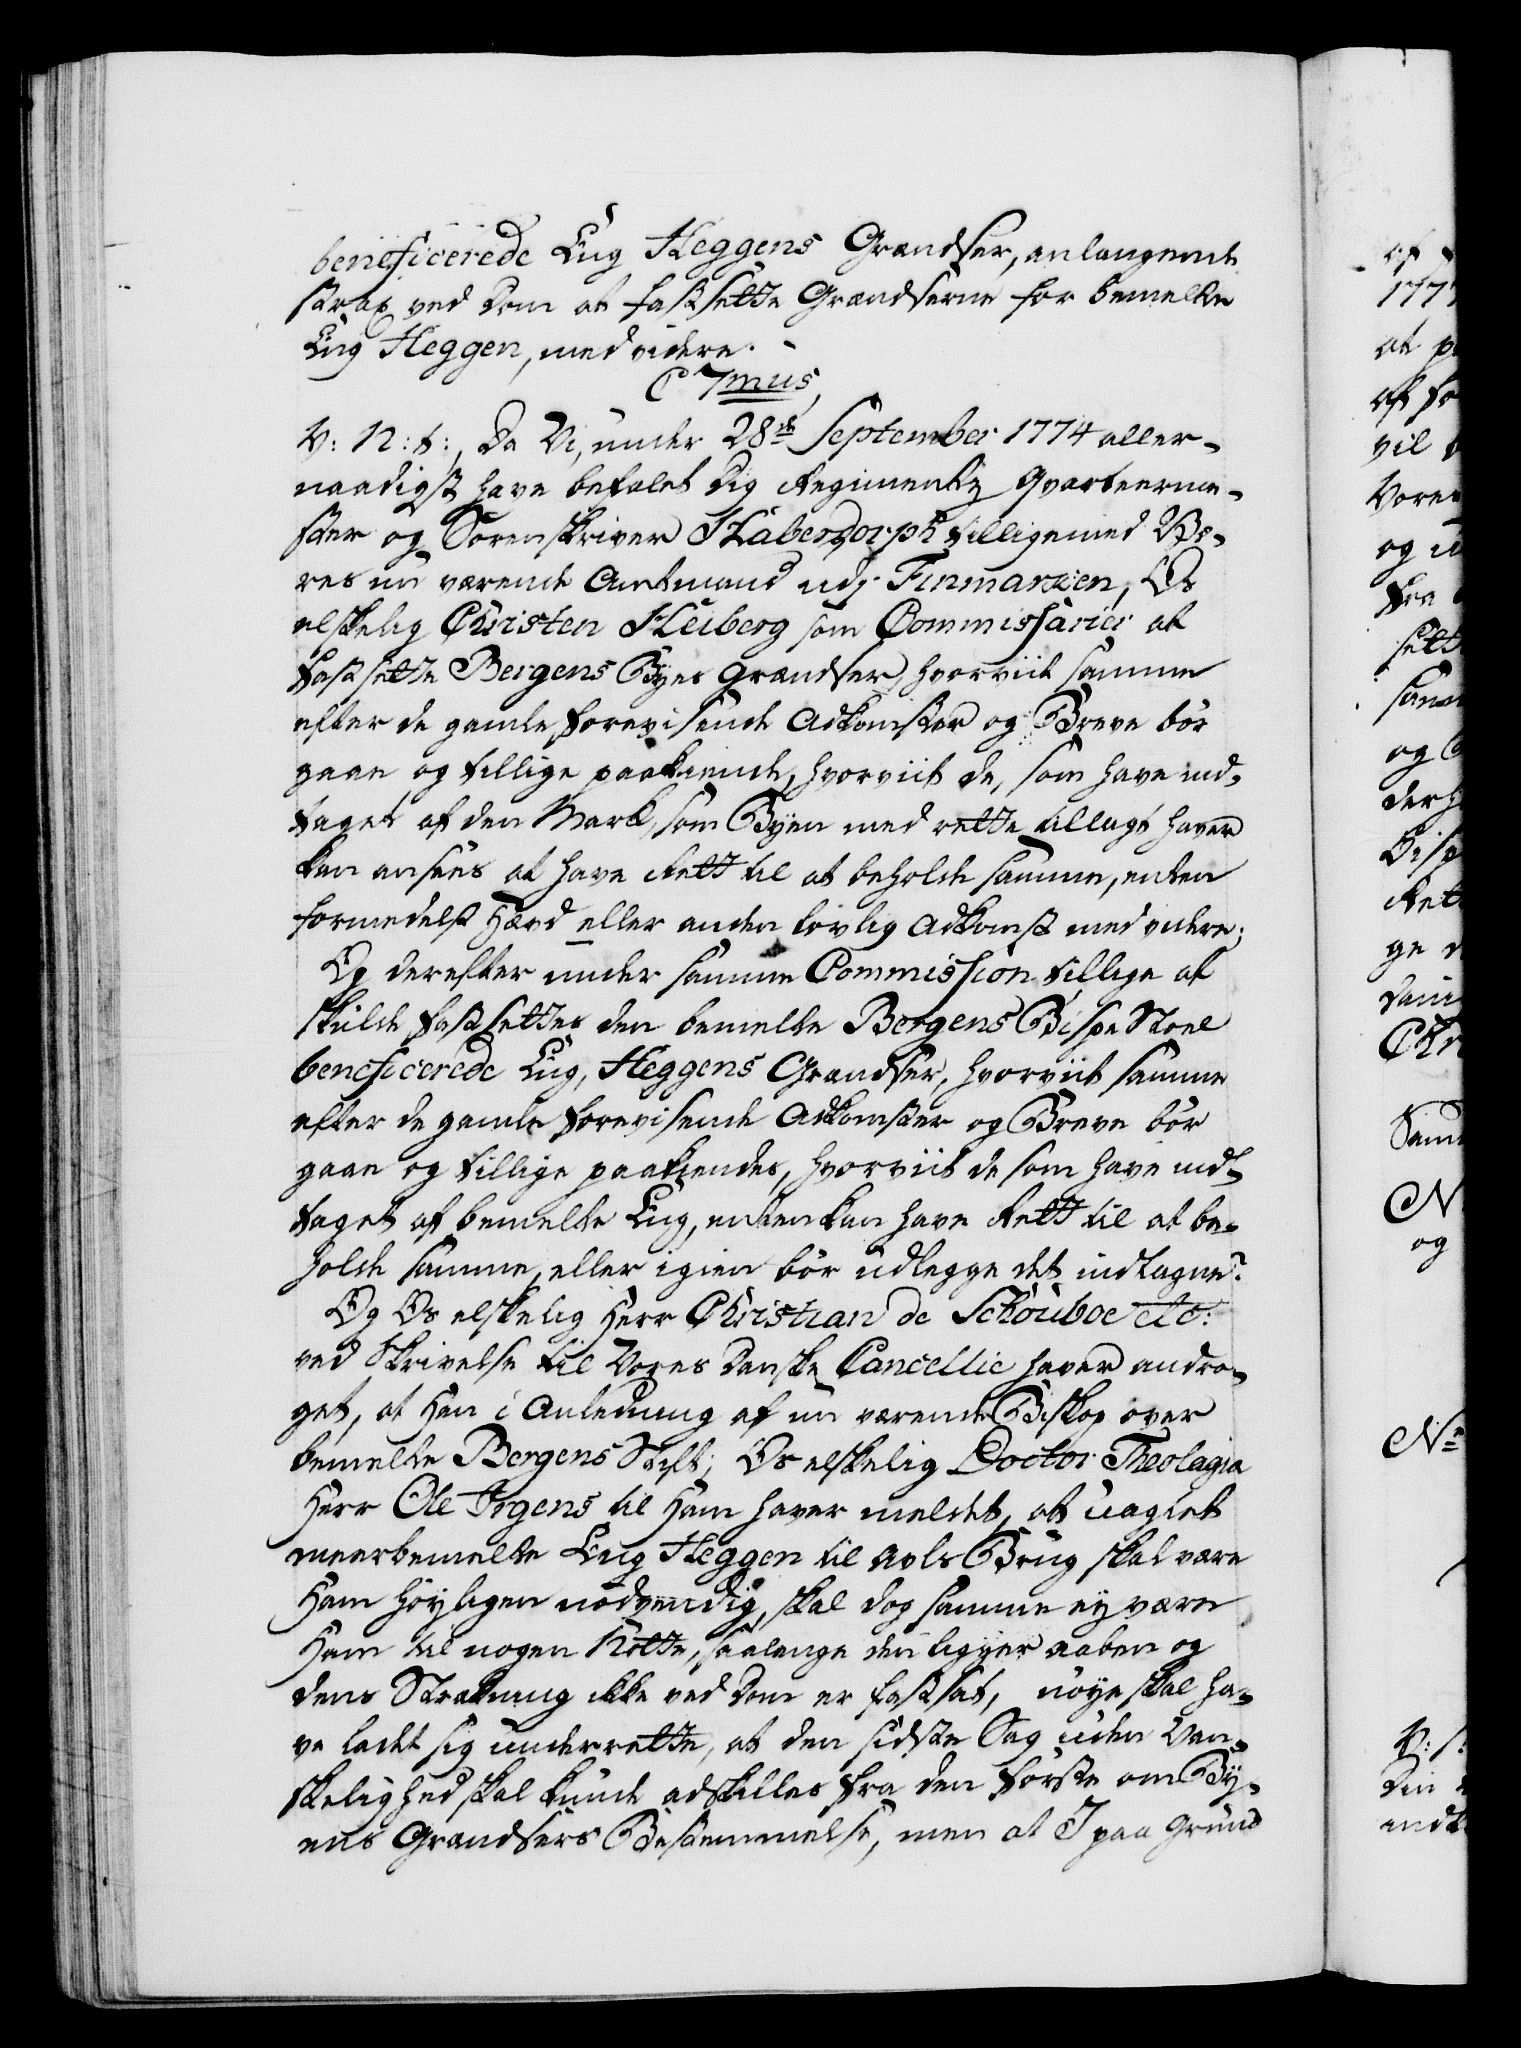 beneficerede Eng Heggens Grændser, anlangende
strax ved Dom at fastsette Grændserne for bemelte
Eng Heggen, med videre.
C 7mus,
V: N: t:, Da Vi, under 28de September 1774 aller-
naadigst have befalet Dig Regiments Qvarteerme-
ster og Sorenskriver Haberdorph tilligemed Vo-
res nu værende Amtmand udj Finmarken, Os
elskelig Christen Heiberg som Commissarier at
fastsette Bergens Byes Grændser, hvorviit samme
efter de gamle forevisende Adkomster og Breve bör
gaae, og tillige paakiende, hvorviit de, som have ind-
taget af den Mark, som Byen med rette tillagt haver
kan ansees at have Rett til at beholde samme, enten
formedelst Hævd eller anden lovlig Adkomst med videre;
Og derefter under samme Commission tillige at
skulde fastsettes den bemelte Bergens Bispe Stoel
beneficerede Eng, Heggens Grændser, hvorviit samme
efter de gamle forevisende Adkomster og Breve bör
gaae og tillige paakiendes, hvorviit de som have ind-
taget af bemelte Eng, enten kan have Rett til at be-
holde samme, eller igien bör udlegge det indtagne:
Og Os elskelig Herr Christian de Schouboe etc:
ved Skrivelse til Vores Danske Cancellie haver andra-
get, at Han i Anledning af nu værende Biskop over
bemelte Bergens Stift, Os elskelig Doctor Theologia
Herr Ole Irgens til Ham haver meldet, at uagtet
meerbemelte Eng Heggen til Avls Brug skal være
Ham höyligen nödvendig, skal dog samme ey være
Ham til nogen Nötte, saalænge den ligger aaben og
dens Strækning ikke ved Dom er fastsat, nöye skal ha-
ve ladet sig underrette, at den sidste Sag uden Van-
skelighed skal kunde adskilles fra den förste om By-
ens Grændsers Bestemmelse, men at I paa Grund